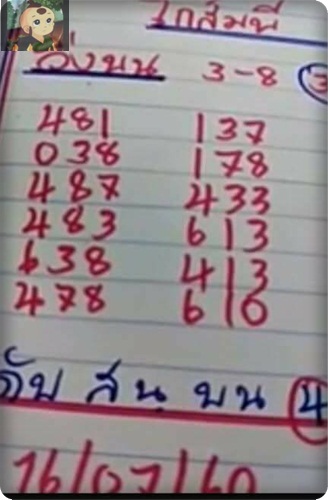 ไกสมพี
วิ่งบน 3-8 3
481 137
038 178
487 433
483 613
638 413
478 610
ดับ สน บน 4
16/07/60